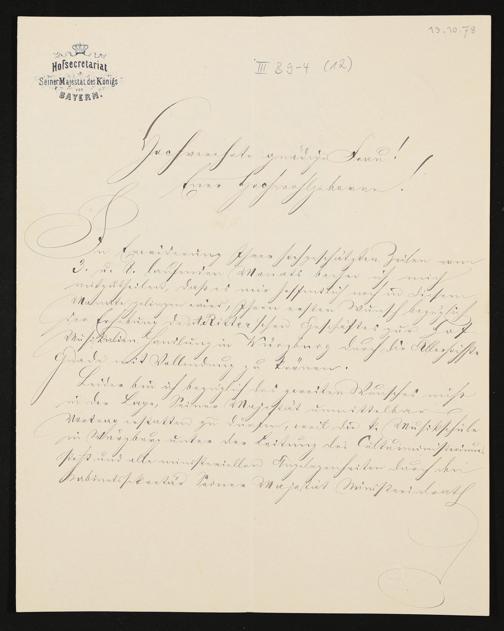 19.10.78
III B9-4 (12)
Hofsecretariat
Seiner Majestät des Königs
von
BAYERN.
Hochverehrte gnädige Frau!
Euer Hochwohlgeboren!
In Erwiderung Ihrer hochgeschätzten Zeilen vom
3. u. 9. laufenden Monats beehre ich mich
mitzutheilen, daß es mir hoffentlich noch in diesem
Monate gelingen wird, Ihren ersten Wunsch bezüglich
der Erhebung des A. Ritter'schen Geschäftes zur Hof-
Musikalienhandlung in Würzburg durch die Allerhöchste
Gnade mit Vollendung zu krönen.
Leider bin ich bezüglich des zweiten Wunsches nicht
in der Lage, Seiner Majestät unmittelbar
Vortrag erstatten zu dürfen, weil die k. Musikschule
in Würzburg unter der Leitung des Cultusministeriums
steht und alle ministeriellen Angelegenheiten durch den
Kabinetssekretär Seiner Majestät Ministerialrath